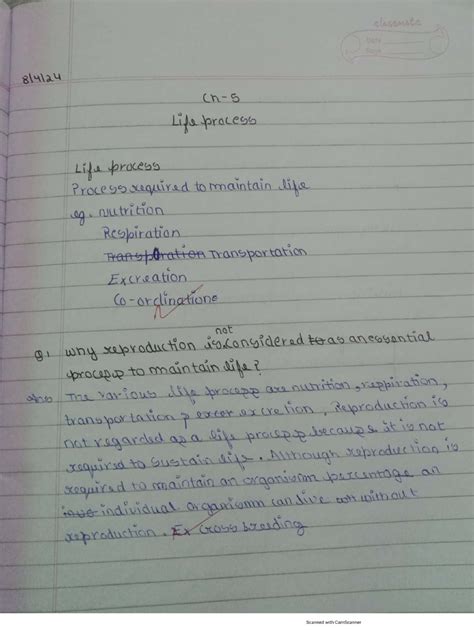 classmate
Date
Page
8/4/24
Ch-5
Life process
Life process
Process required to maintain life
eg. Nutrition
Respiration
Transporation Transportation
Excreation
Co-ordinatione
not
Q1. Why reproduction is considered to as an essential
process to maintain life?
Ans The various life process are nutrition, respiration,
transportation excretion, Reproduction is
not regarded as a life process because it is not
required to sustain life. Although reproduction is
required to maintain an organism percentage an
individual organism can live without
reproduction. Ex Cross breeding
Scanned with CamScanner